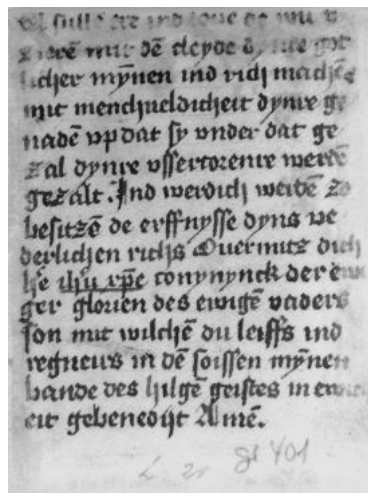 zieren mit dē cleyde d' got
licher mȳnen ind rich machē
mit menchueldicheit dynre ge
nadē vp dat sy vnder dat ge
zal dynre vsseruorenre werē
gezalt. Ind werdich werdē zo
besitzē de erffnysse dyns ve
derlichen richs Ouermitz dich
ihū xp̄e conynynck der ewi
ger glorien des ewigē vaders
son mit wilchē du leiffs ind
regneirs in dē soissen mȳnen
bande des hilgē geistes in ewi
eit gebenedijt Amē.
401